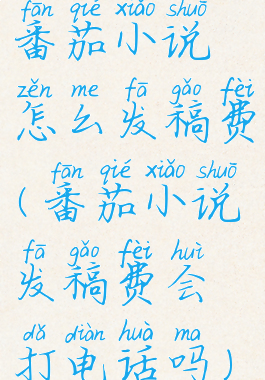 fān qié xiǎo shuō
番茄小说
zěn me fā gǎo fèi
怎么发稿费
fān qié xiǎo shuō
(番茄小说
fā gǎo fèi huì
发稿费会
dǎ diàn huà ma
打电话吗)